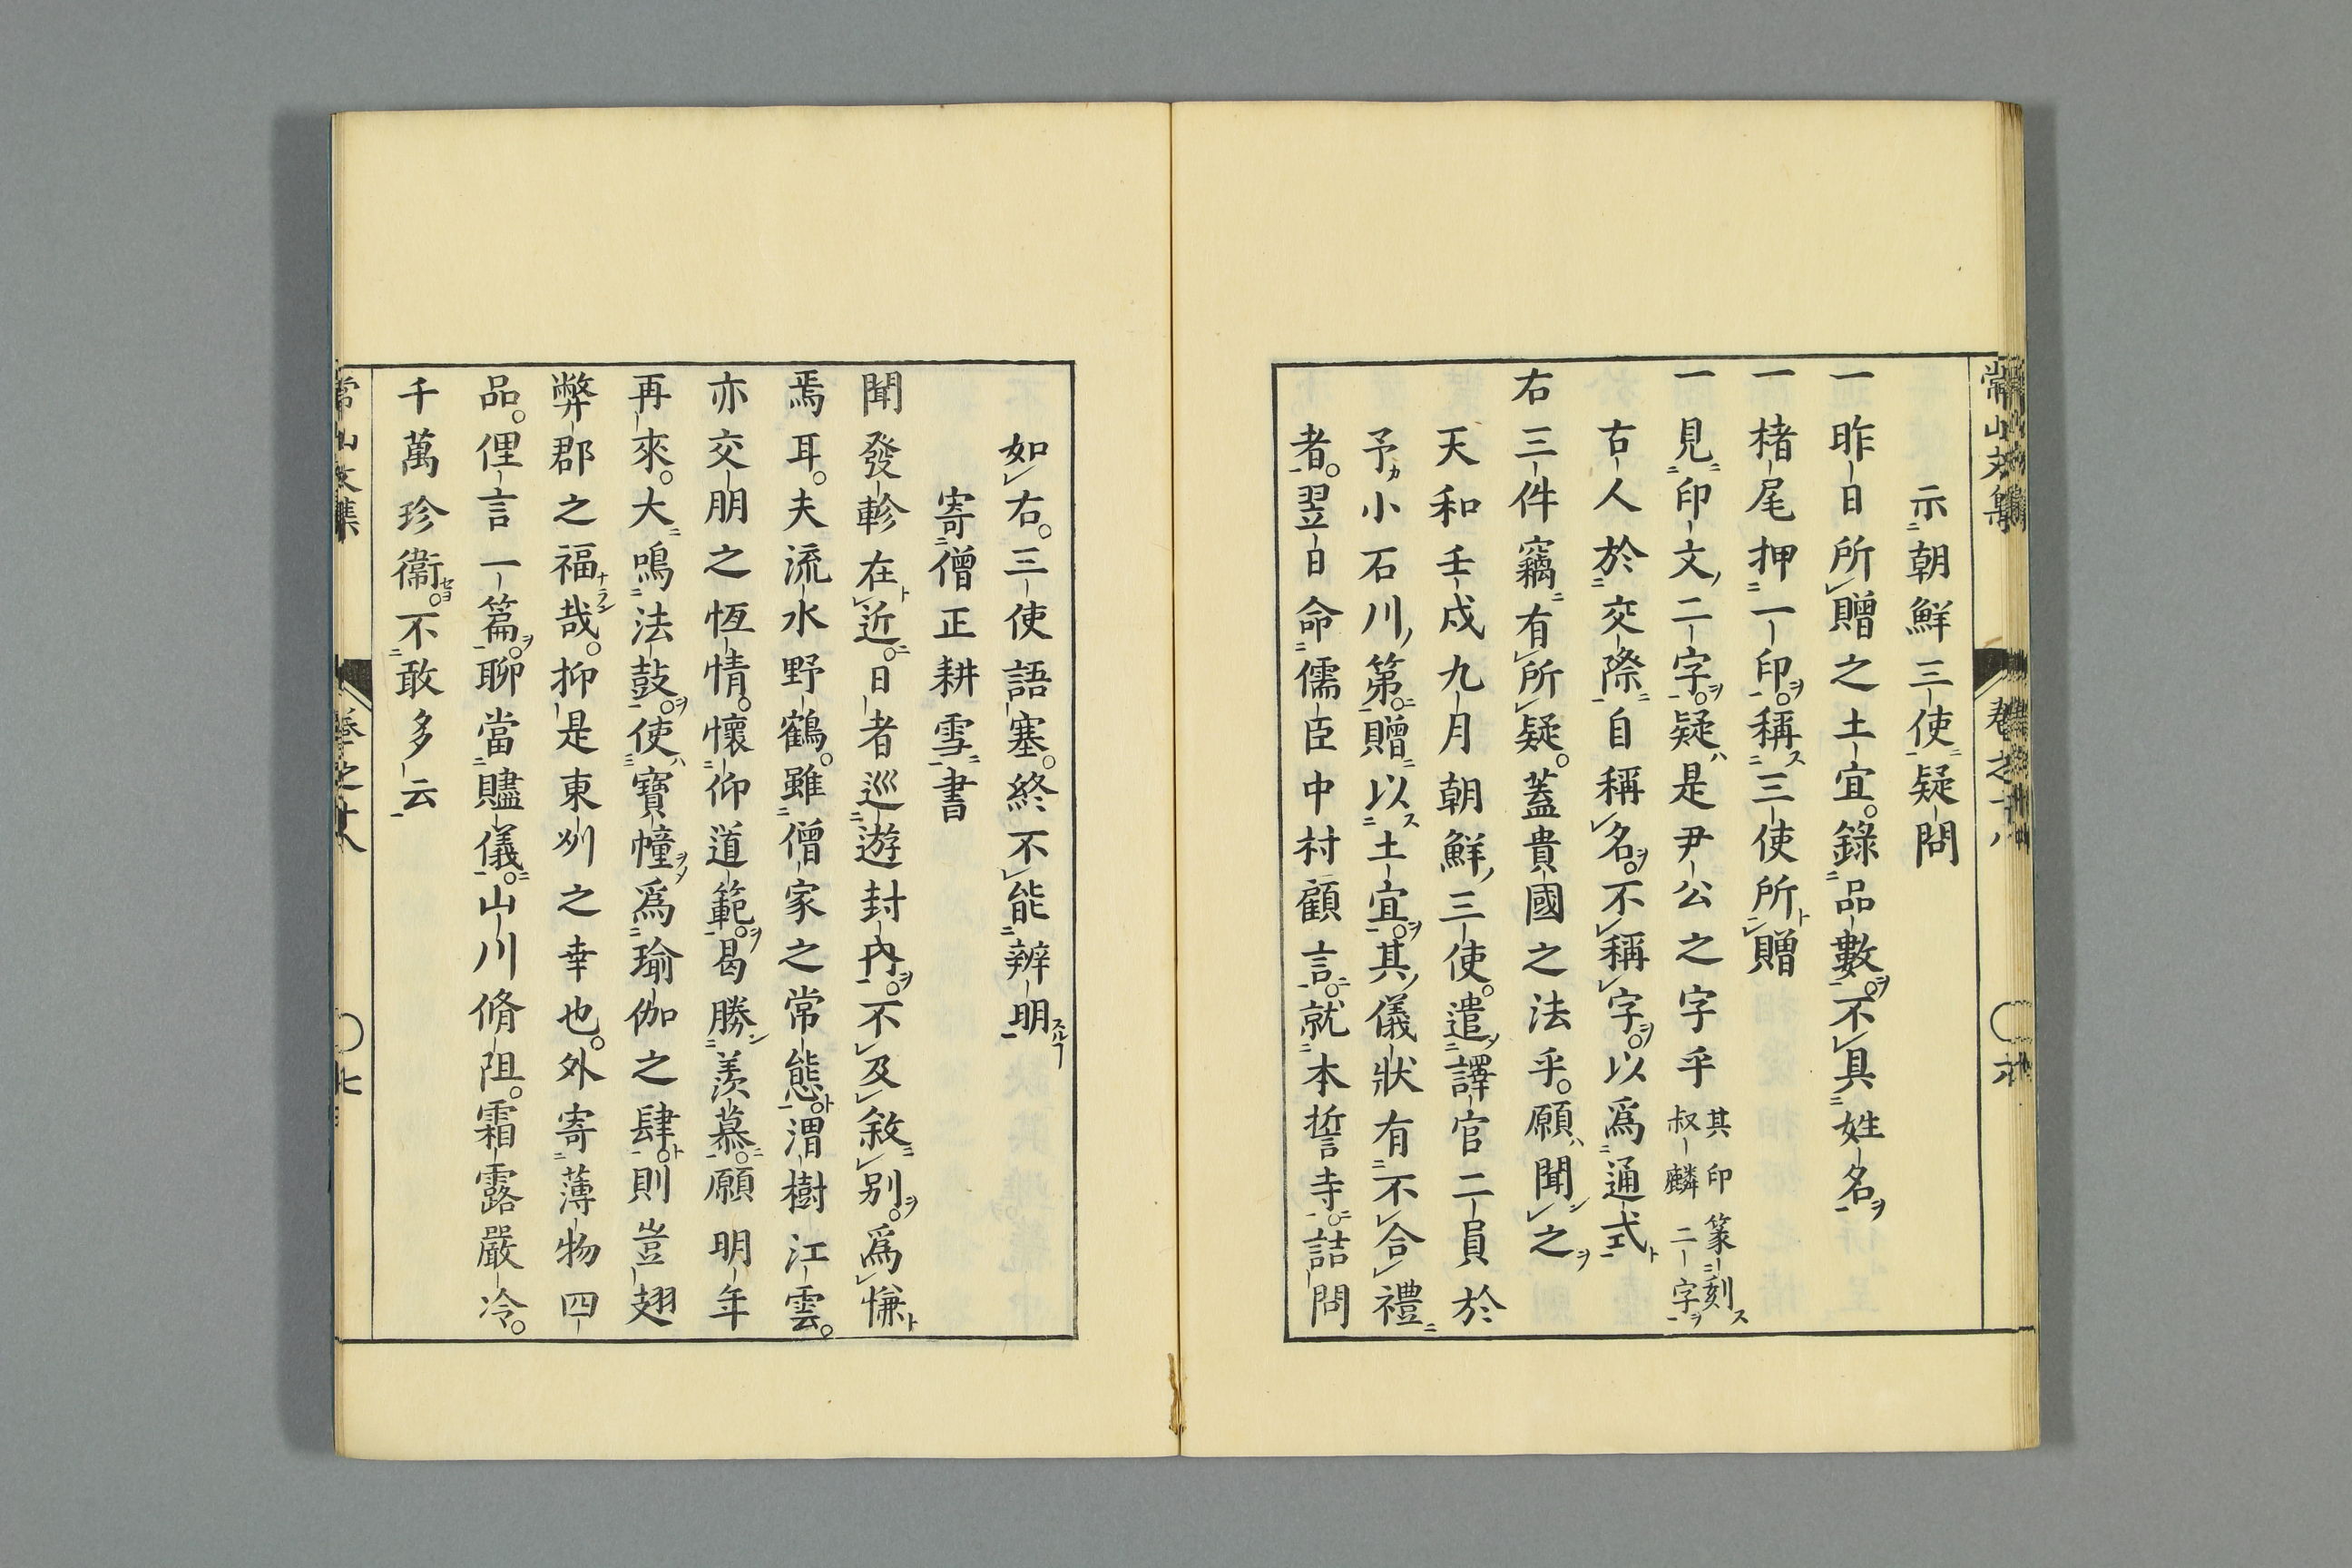 示朝鮮三使疑問
一昨日所贈之土宜。錄品數。不具姓名
一楮尾押一印。稱三使所贈
一見印文二字。疑是尹公之字乎
其印篆刻
叔麟二字
古人於交際自稱名。不稱字。以爲通式
右三件竊有所疑。蓋貴國之法乎。願聞之
天和壬戌九月朝鮮三使。遣譯官二員於
予小石川第。贈以土宜。其儀狀有不合禮
者。翌日命儒臣中村顧言。就本誓寺。詰問
如右。三使語塞。終不能辨明
寄僧正耕雪書
聞發軫在近。日者巡遊封內。不及敘別。爲慊
焉耳。夫流水野鶴。雖僧家之常態。渭樹江雲。
亦交朋之恆情。懷仰道範。曷勝羨慕。願明年
再來。大鳴法鼓。使寶幢爲瑜伽之肆。則豈翅
弊郡之福哉。抑是東州之幸也。外寄薄物四
品。俚言一篇。聊當贐儀。山川脩阻。霜露嚴冷。
千萬珍衞。不敢多云